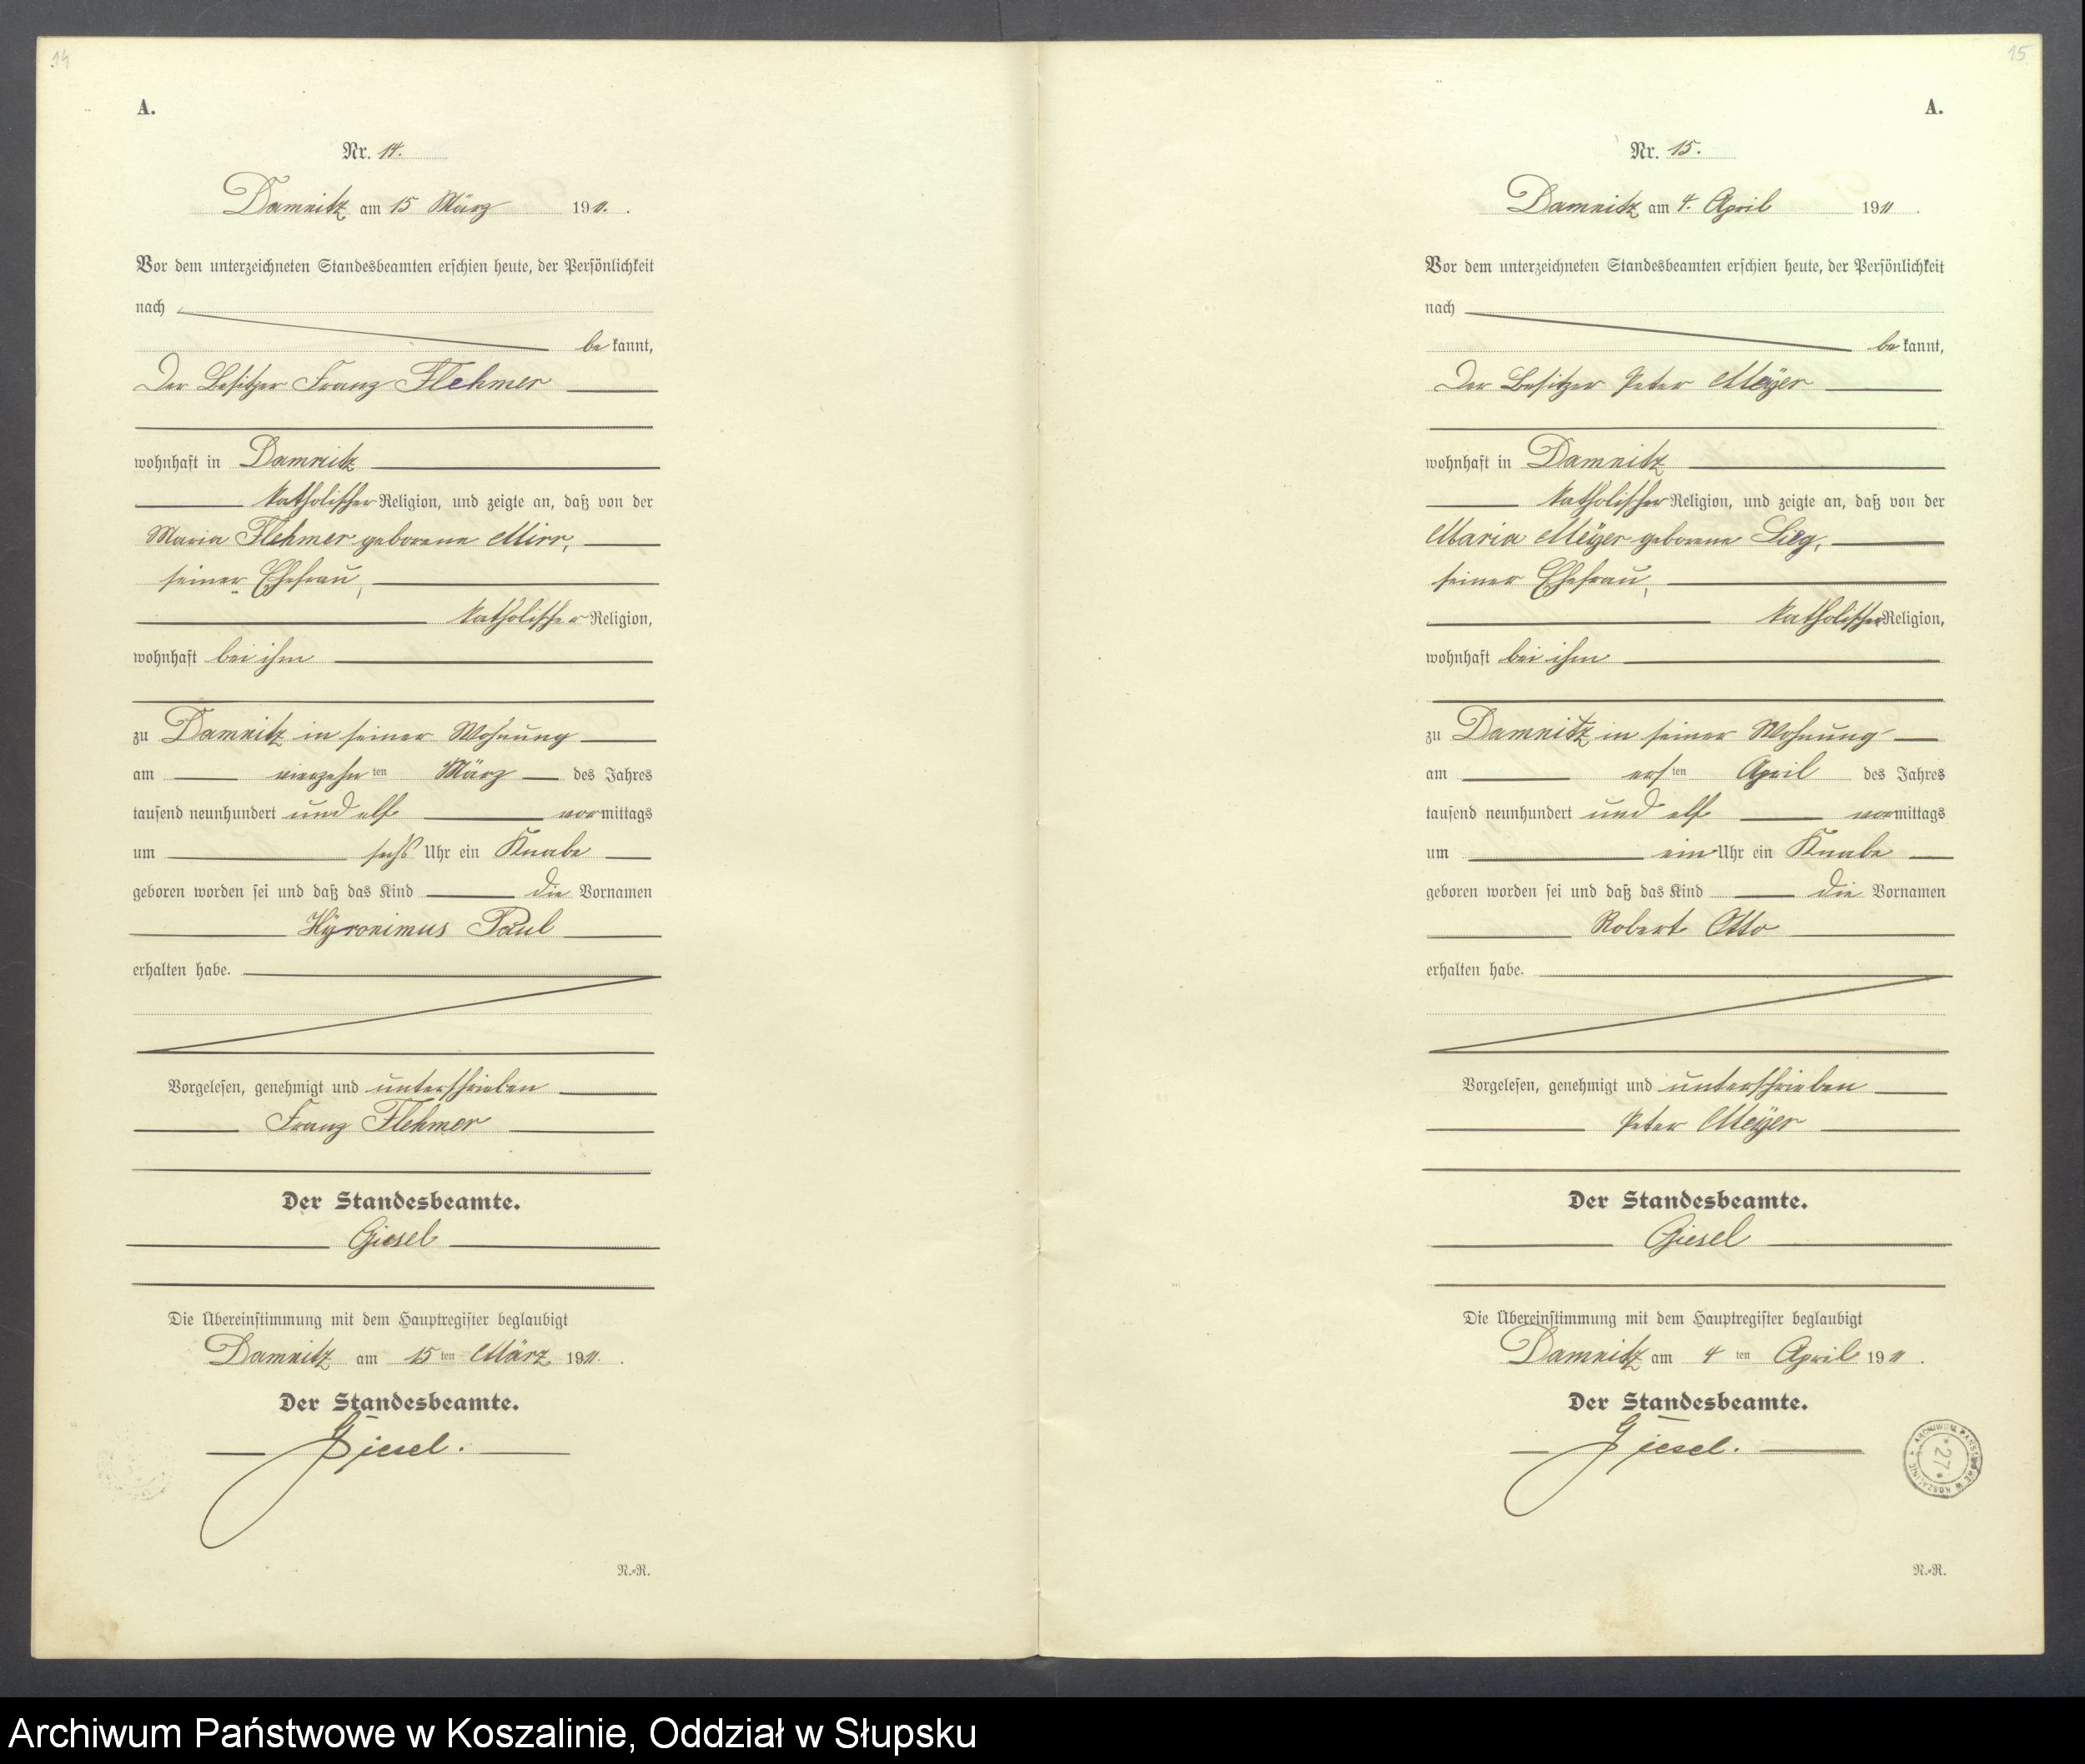 14
A.
Nr. 14.
Damnitz am 15 März 1911.
Vor dem unterzeichneten Standesbeamten erschien heute, der Persönlichkeit
nach
be kannt,
Der Besitzer Franz Flehmer
wohnhaft in Damnitz
katholischer Religion, und zeigte an, daß von der
Maria Flehmer geborene Mirr,
seiner Ehefrau,
katholischer Religion,
wohnhaft bei ihm
zu Damnitz in seiner Wohnung
am vierzehn ten März des Jahres
tausend neunhundert und elf vormittags
um sechs Uhr ein Knabe
geboren worden sei und daß das Kind die Vornamen
Hyronimus Paul
erhalten habe.
Vorgelesen, genehmigt und unterschrieben
Franz Flehmer
Der Standesbeamte.
Giesel
Die Übereinstimmung mit dem Hauptregister beglaubigt
Damnitz am 15 ten März 1911.
Der Standesbeamte.
Giesel.
N.-R.
15
A.
Nr. 15.
Damnitz am 4. April 1911.
Vor dem unterzeichneten Standesbeamten erschien heute, der Persönlichkeit
nach
be kannt,
Der Besitzer Peter Meÿer
wohnhaft in Damnitz
katholischer Religion, und zeigte an, daß von der
Maria Meÿer geborene Sieg,
seiner Ehefrau,
katholischer Religion,
wohnhaft bei ihm
zu Damnitz in seiner Wohnung
am ers ten April des Jahres
tausend neunhundert und elf vormittags
um ein Uhr ein Knabe
geboren worden sei und daß das Kind die Vornamen
Robert Otto
erhalten habe.
Vorgelesen, genehmigt und unterschrieben
Peter Meÿer
Der Standesbeamte.
Giesel
Die Übereinstimmung mit dem Hauptregister beglaubigt
Damnitz am 4 ten April 1911.
Der Standesbeamte.
Giesel.
ARCHIWUM PAŃSTWOWE W KOSZALINIE
*27*
N.-R.
Archiwum Państwowe w Koszalinie, Oddział w Słupsku